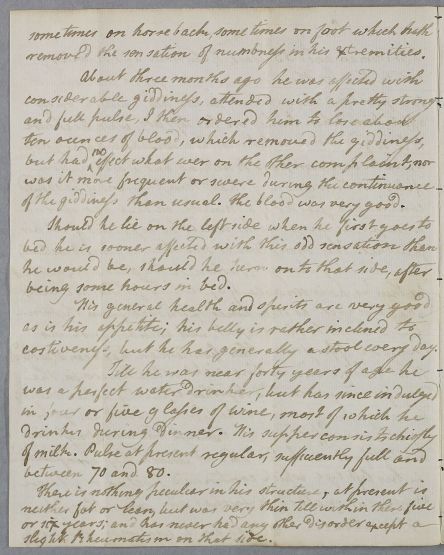 sometimes on horseback, sometimes on foot which hath
removed the sensation of numbness in his extremities.
About three months ago he was affected with
considerable giddiness, attended with a pretty strong
and full pulse, I then ordered him to lose about
ten ounces of blood, which removed the giddiness,
but had no effect what ever on the other complaint, nor
was it more frequent or severe during the continuance
of the giddiness than usual. the blood was very good.
Should he lie on the left side when he first goes to
bed he is sooner affected with this odd sensation than
he would be, should he turn onto that side, after
being some hours in bed.
His general health and spirits are very good
as is his appetite; his belly is rather inclined to
costiveness, but he has generally a stool every day.
Till he was near forty years of age he
was a perfect water drinker, but has since indulged
in four or five glasses of wine, most of which he
drinks during dinner. His supper consists chiefly
of milk. Pulse at present regular, sufficiently full and
between 70 and 80.
There is nothing peculiar in his structure, at present is
neither fat or lean, but was very thin till within these five
or six years; and has never had any other disorder except a
slight Rheumatism on that side.